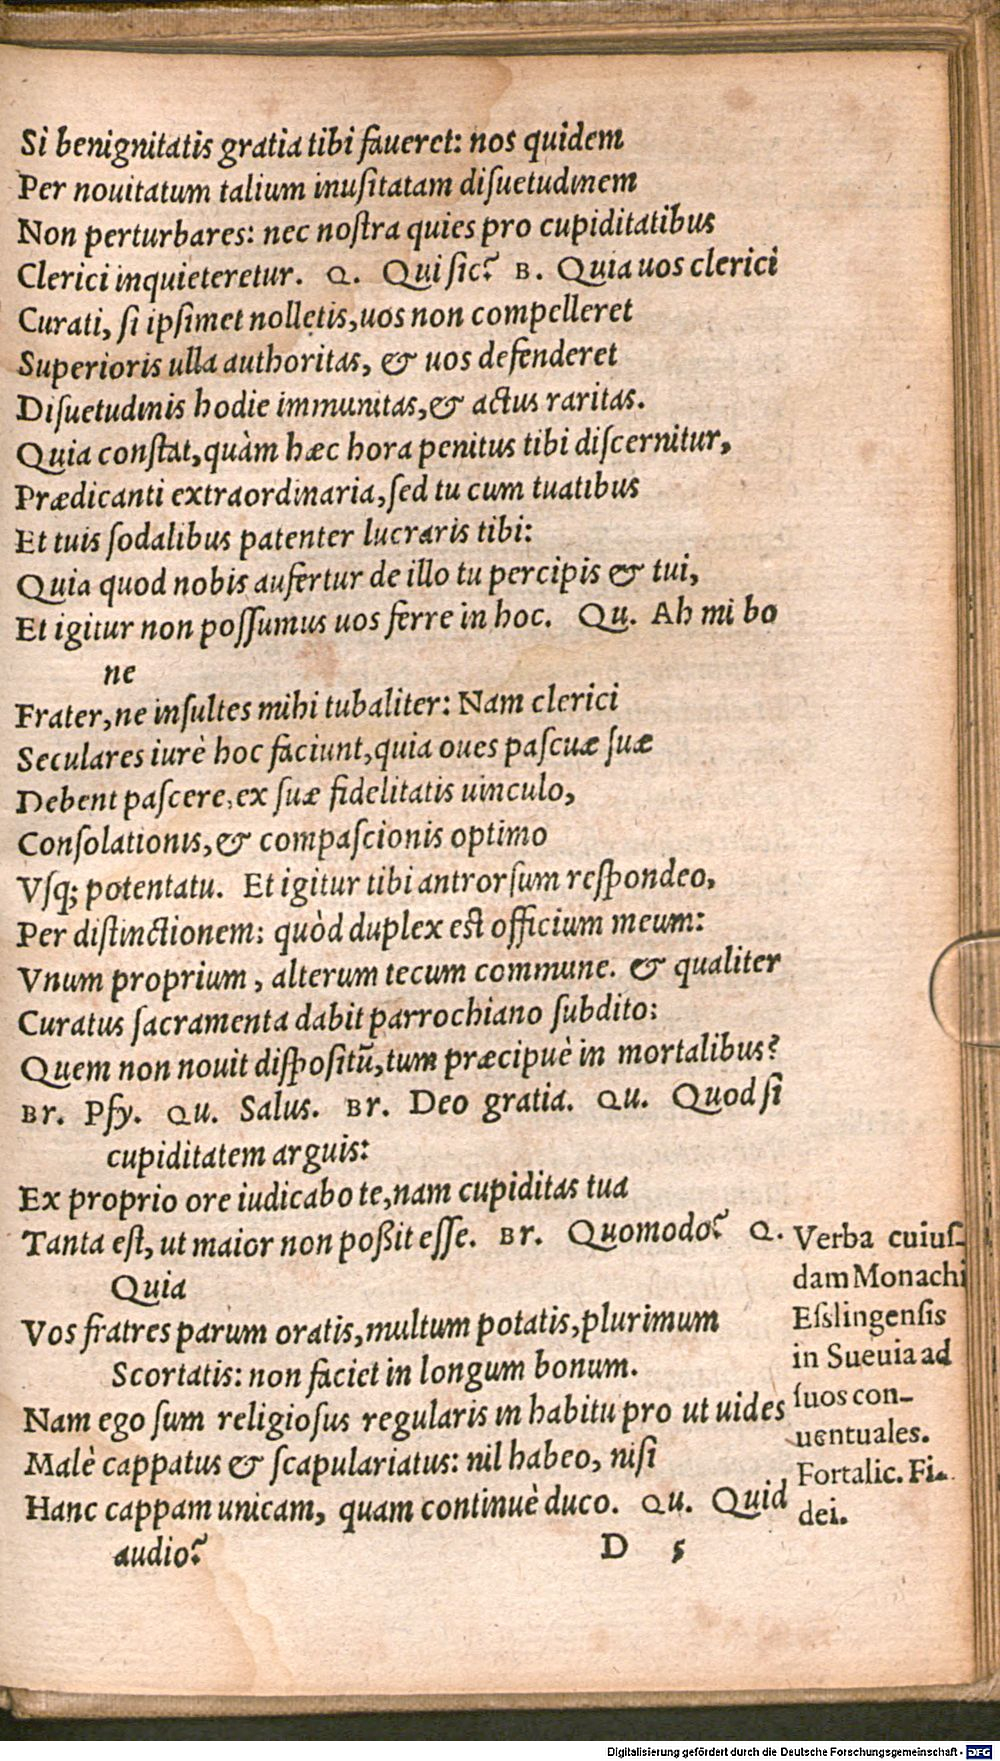 Si benignitatis gratia tibi faueret: nos quidem
Per nouitatum talium inusitatam disuetudinem
Non perturbares: nec nostra quies pro cupiditatibus
Clerici inquieteretur. Q. Qui sic? B. Quia uos clerici
Curati, si ipsimet nolletis, uos non compelleret
Superioris ulla authoritas, & uos defenderet
Disuetudinis hodie immunitas, & actus raritas.
Quia constat, quàm hæc hora penitus tibi discernitur,
Prædicanti extraordinaria, sed tu cum tuatibus
Et tuis sodalibus patenter lucraris tibi:
Quia quod nobis aufertur de illo tu percipis & tui,
Et igitur non possumus uos ferre in hoc. Qu. Ah mi bo
ne
Frater, ne insultes mihi tubaliter: Nam clerici
Seculares iurè hoc faciunt, quia oues pascuæ suæ
Debent pascere, ex suæ fidelitatis uinculo,
Consolationis, & compascionis optimo
Vsq; potentatu. Et igitur tibi antrorsum respondeo,
Per distinctionem: quòd duplex est officium meum:
Vnum proprium, alterum tecum commune. & qualiter
Curatus sacramenta dabit parrochiano subdito:
Quem non nouit dispositū, tum præcipuè in mortalibus?
Br. Psy. Qu. Salus. Br. Deo gratia. Qu. Quod si
cupiditatem arguis:
Ex proprio ore iudicabo te, nam cupiditas tua
Tanta est, ut maior non poßit esse. Br. Quomodo? Q.
Quia
Vos fratres parum oratis, multum potatis, plurimum
Scortatis: non faciet in longum bonum.
Nam ego sum religiosus regularis in habitu pro ut uides
Malè cappatus & scapulariatus: nil habeo, nisi
Hanc cappam unicam, quam continuè duco. Qu. Quid
audio?
D 5
Verba cuius-
dam Monachi
Esslingensis
in Sueuia ad
suos con-
uentuales.
Fortalic. Fi-
dei.
Digitalisierung gefördert durch die Deutsche Forschungsgemeinschaft - DFG